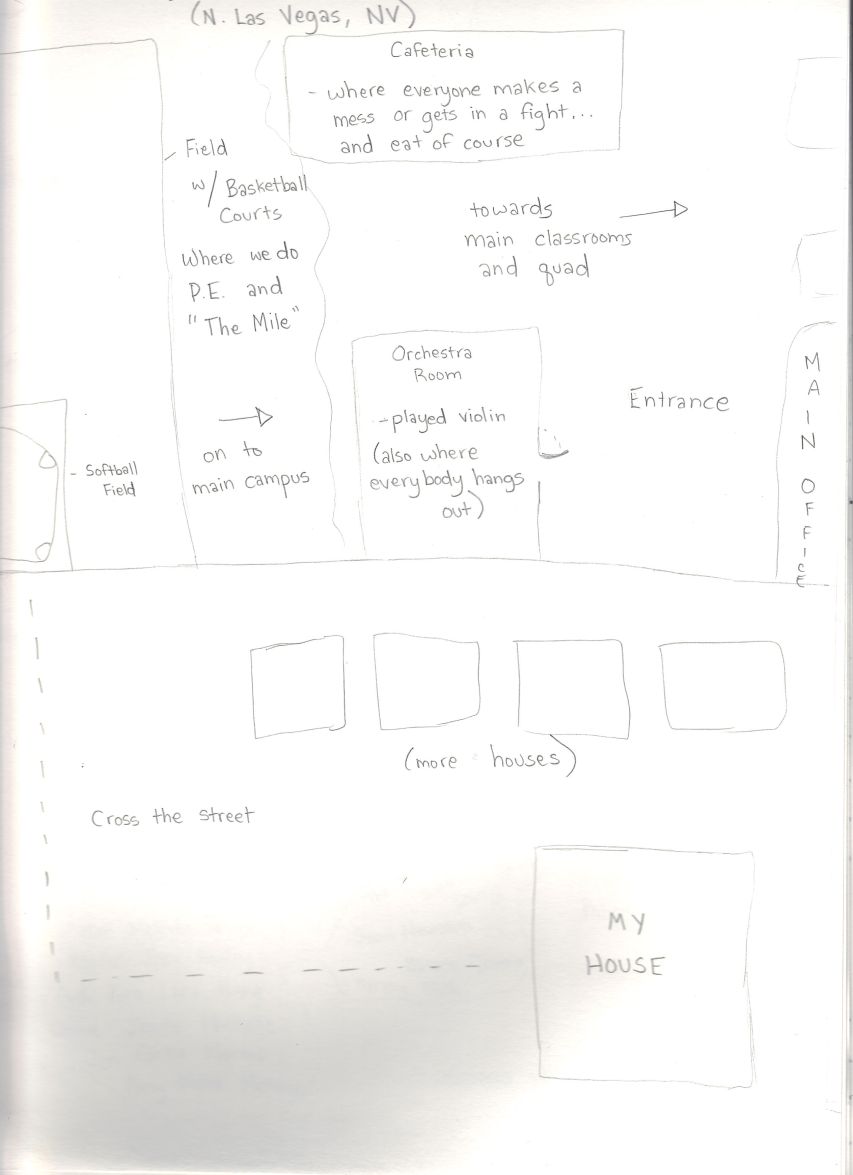 (N. Las Vegas, NV)
Cafeteria
- where everyone makes a
mess or gets in a fight...
and eat of course
- Field
w/ Basketball
Courts
Where we do
P.E. and
"The Mile"
towards
main classrooms
and quad
Orchestra
Room
- played violin
(also where
everybody hangs
out)
Entrance
MAIN OFFICE
- Softball
Field
on to
main campus
(more houses)
Cross the street
MY
HOUSE